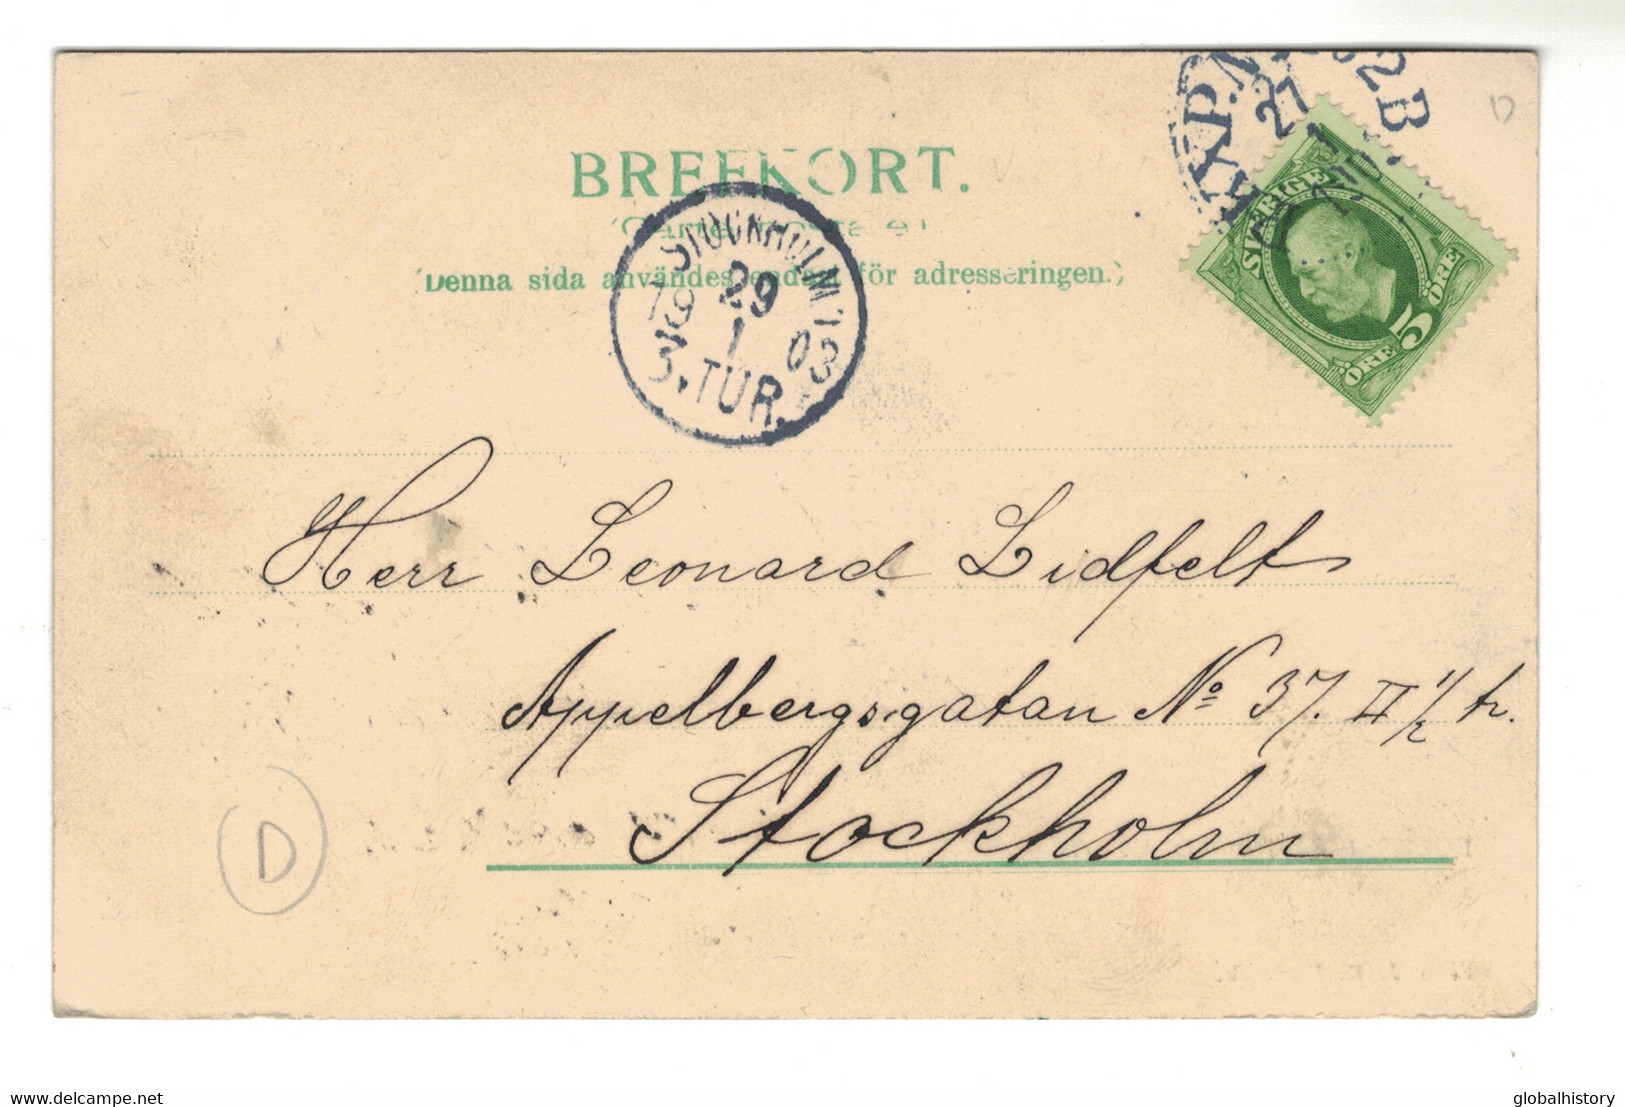 BREFKORT.
(Carte postale)
(Denna sida användes endast för adresseringen.)
STOCKHOLM 1
29
19 1 03
3.TUR.
PKXP. N
2B
27
SVERIGE
5
ÖRE
ÖRE
Herr Leonard Lidfelt
Appelbergsgatan No 37. II 1/2 tr.
Stockholm
D
D
delcampe.net
globalhistory